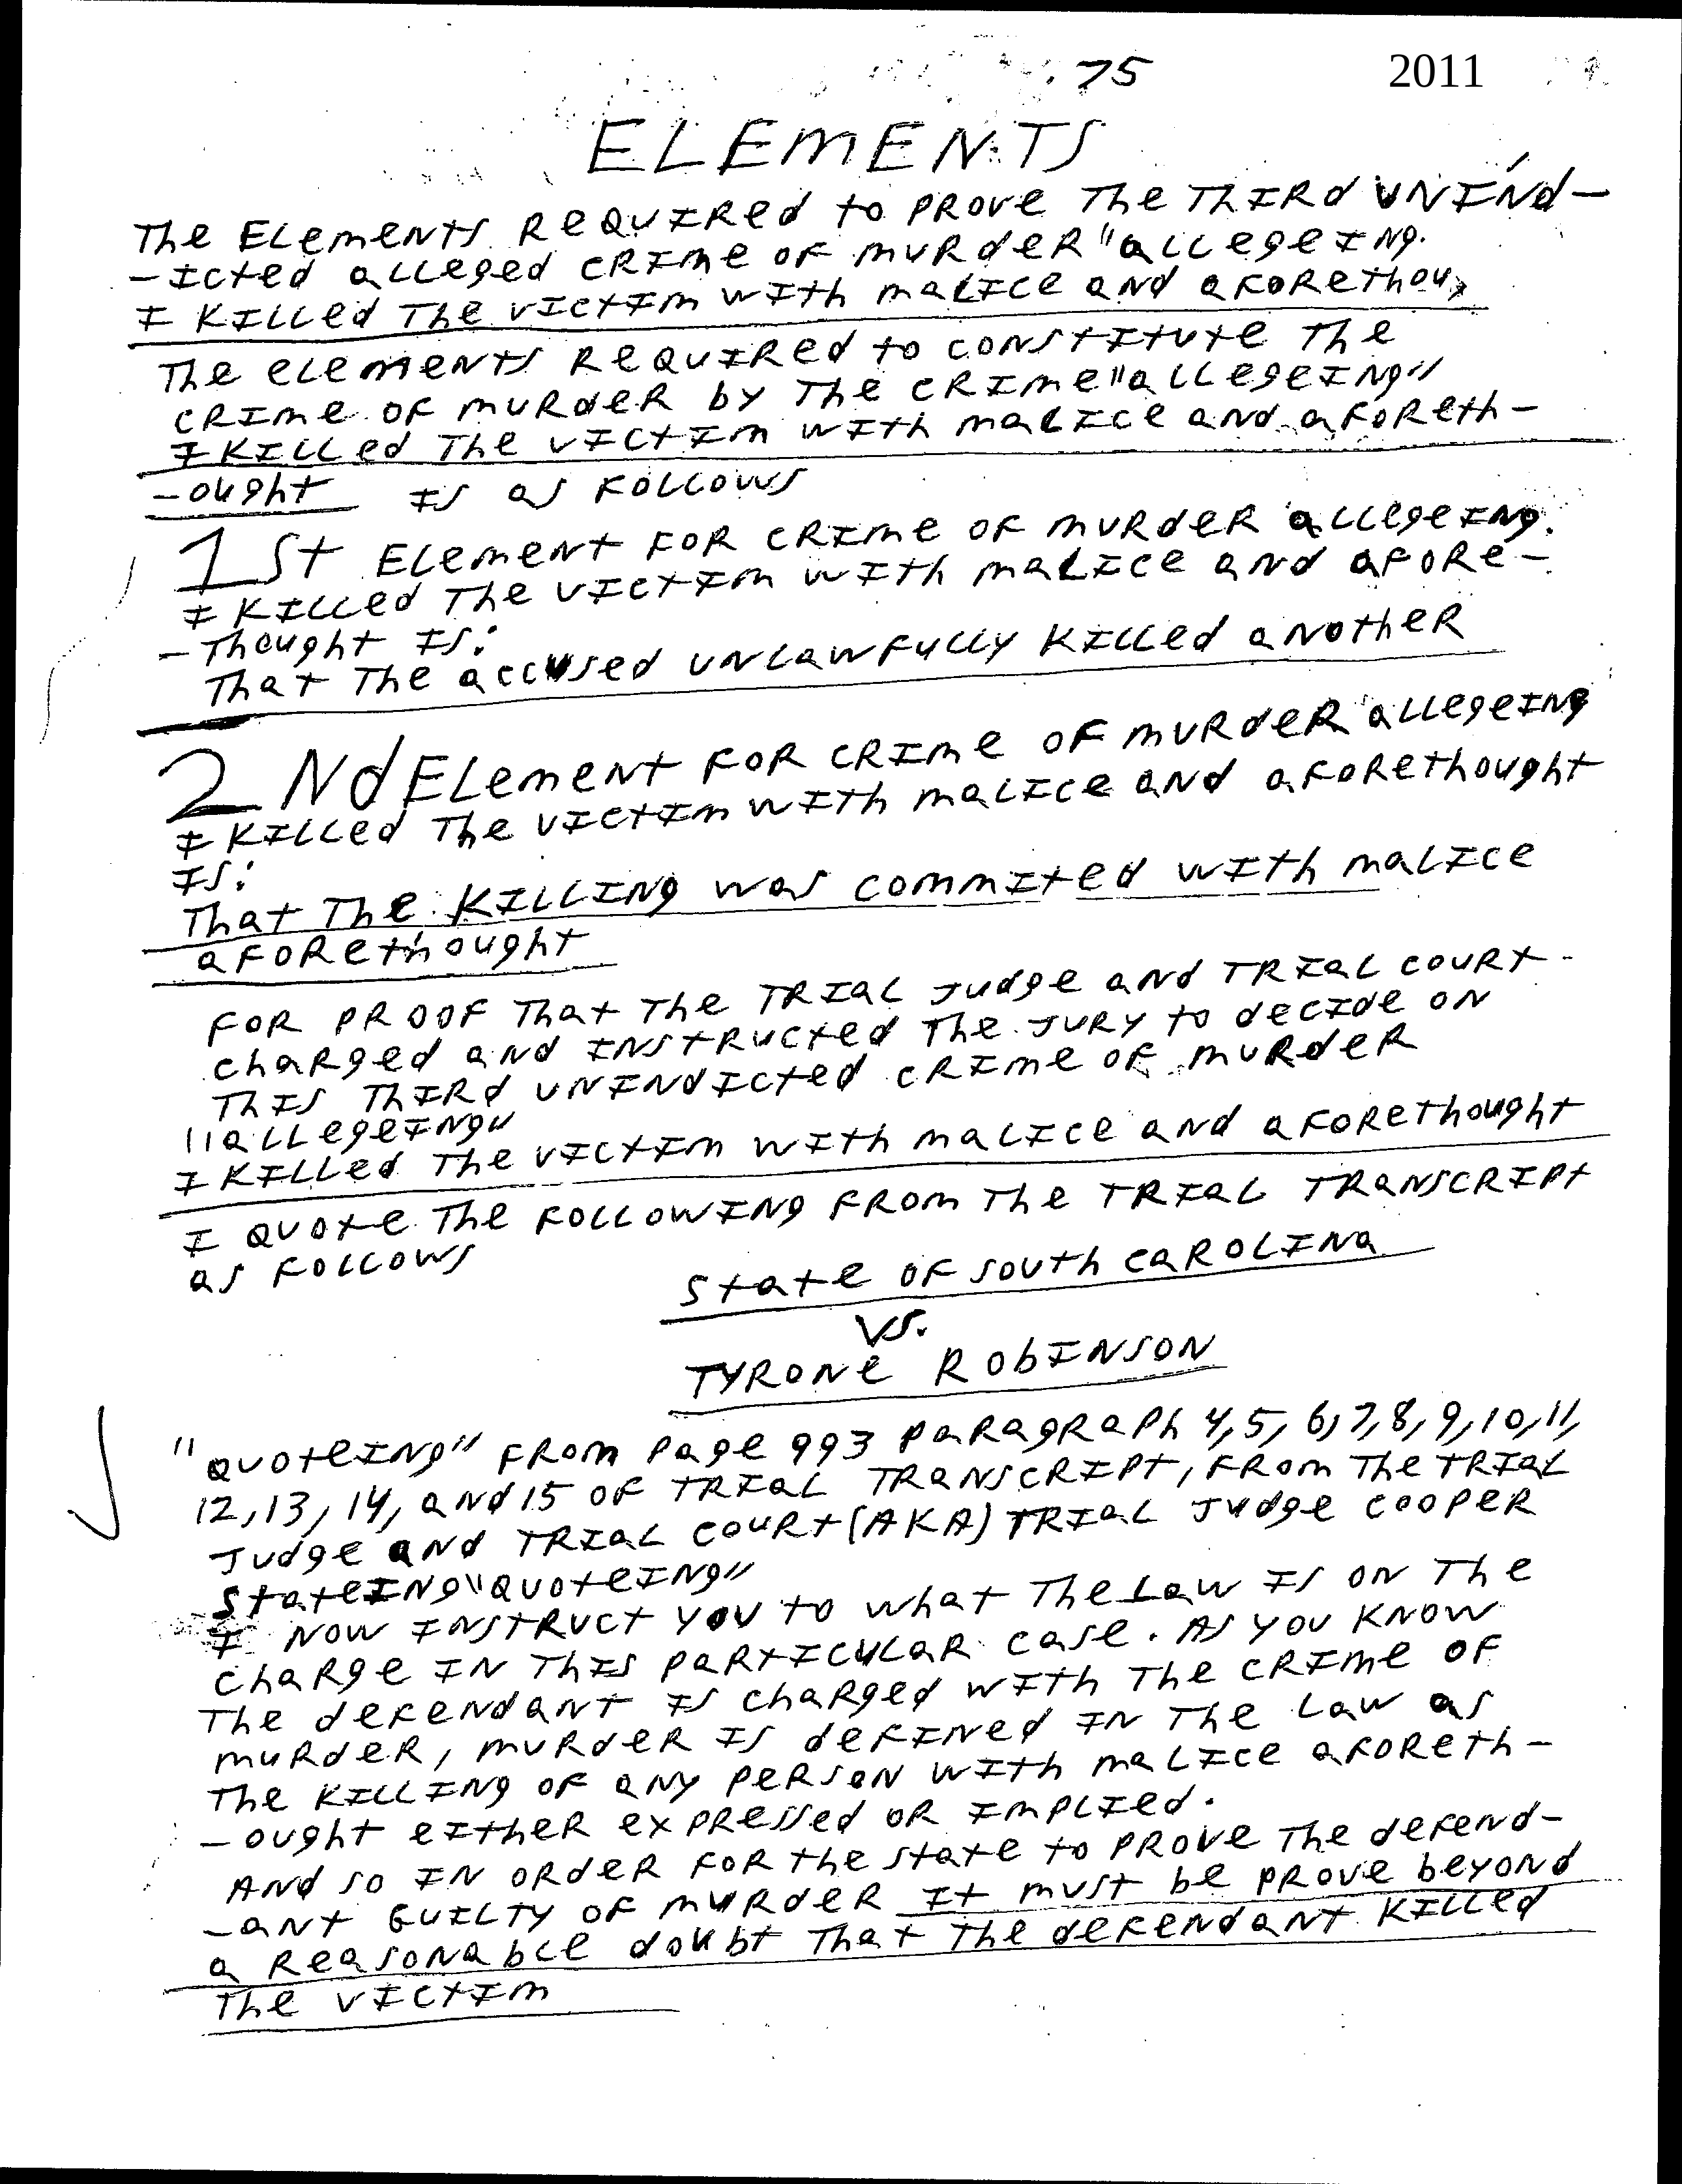 75 2011
ELEMENTS
The Elements Required to prove The Third unind-
-icted alleged crime of murder "allegeing.
I Killed The victim with malice and aforethou
The elements required to constitute the
crime of murder by the crime "allegeing"
I Killed The victim with malice and aforeth-
-ought is as follows
1st Element for crime of murder allegeing.
I Killed The victim with malice and afore-
-Thought Is:
That The accused unlawfully Killed another
2Nd Element for crime of murder "allegeing
I Killed The victim with malice and aforethought
Is:
That The Killing was commited with malice
aforethought
For proof That The Trial Judge and Trial court
charged and instructed The Jury to decide on
This Third unindicted crime of murder
"allegeing"
I Killed The victim with malice and aforethought
I quote The following from The Trial Transcript
as follows
State of South Carolina
VS.
Tyrone Robinson
"quoteing" From page 993 paragraph 4,5,6,7,8,9,10,11,
12,13,14, and 15 of Trial Transcript, From The Trial
Judge and Trial court (AKA) Trial Judge Cooper
Stateing "quoteing"
I now instruct you to what The Law is on The
charge in This particular case. As you know
The defendant is charged with The crime of
murder, murder is defined in The Law as
The Killing of any person with malice aforeth-
-ought either expressed or implied.
And so in order for the state to prove The defend-
-ant Guilty of murder It must be prove beyond
a reasonable doubt That The defendant Killed
The victim